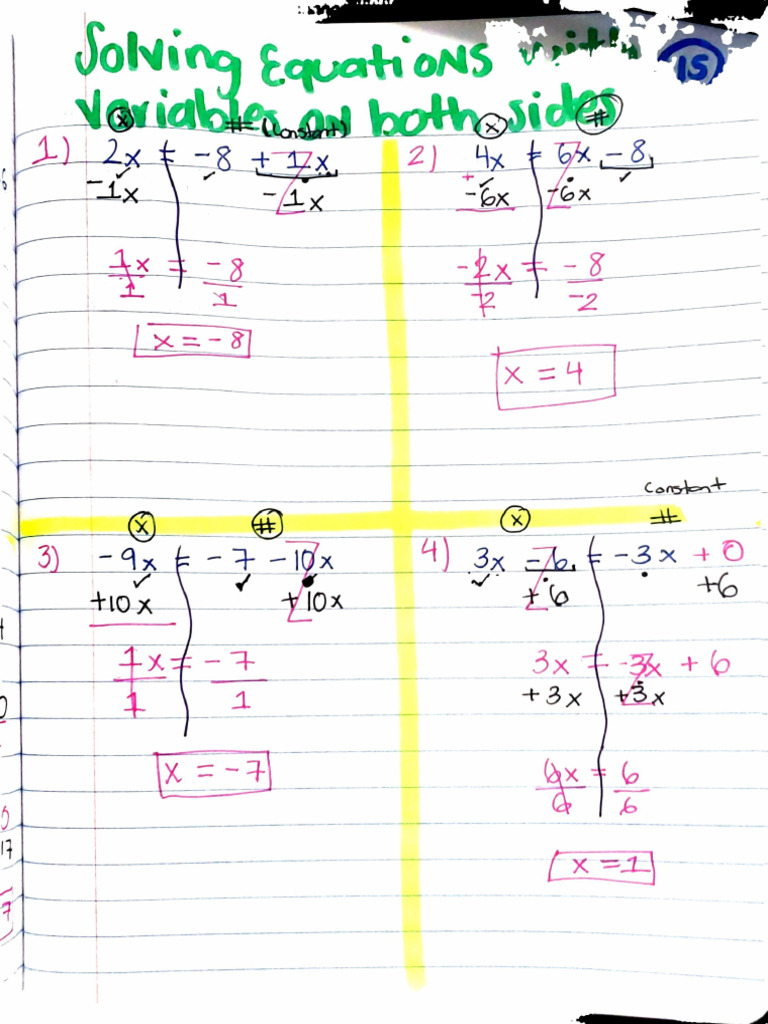 Solving Equations with
Variables on both sides
15
x # (constant)
1) 2x = -8 + 1x
-1x - 1x
1x = -8
1 1
x = -8
x #
2) 4x = 6x - 8
+
-6x -6x
-2x = -8
-2 -2
x = 4
x #
3) -9x = -7 - 10x
+10x + 10x
1x = -7
1 1
x = -7
constant
x #
4) 3x - 6 = -3x + 0
+ 6 +6
3x = -3x + 6
+3x +3x
6x = 6
6 6
x = 1
17
7